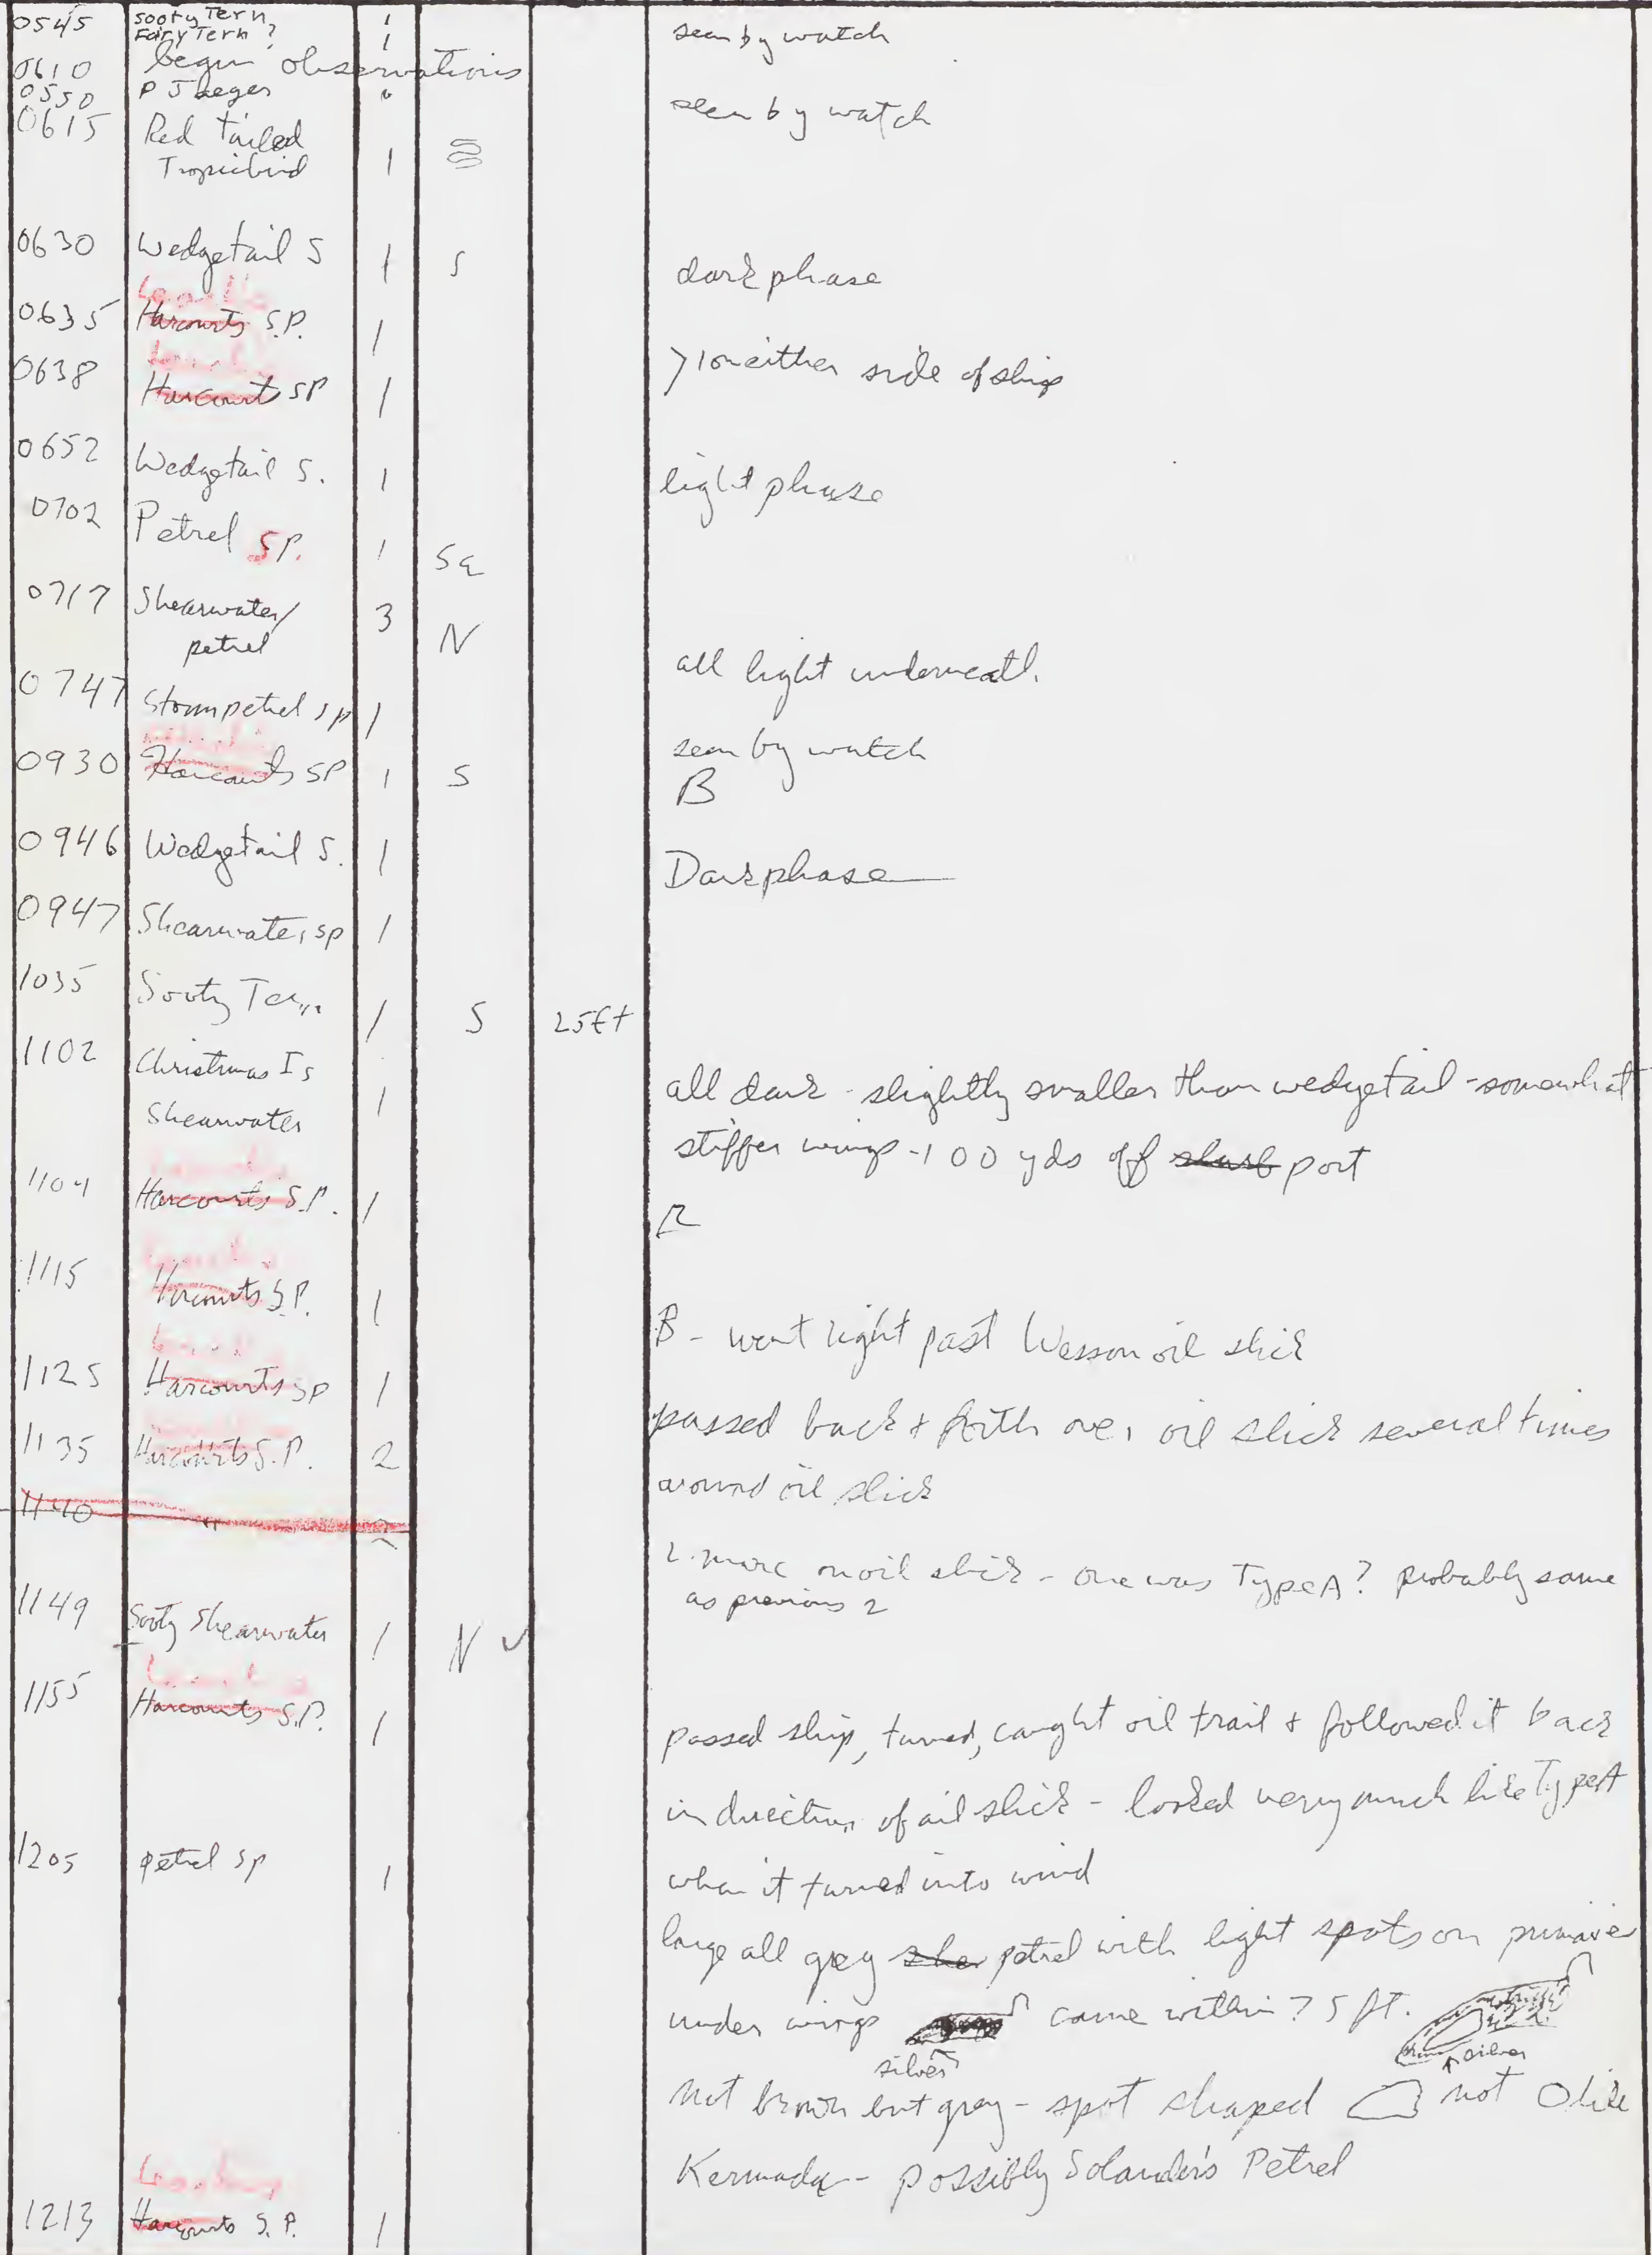 0545 Sooty Tern 1
Fairy Tern? 1 seen by watch
0610 begin observations
0550 P Jaeger seen by watch
0615 Red tailed
Tropicbird 1
0630 Wedgetail S 1 S dark phase
0635 Harcourts S.P. 1
0638 Harcourt SP 1 >1 on either side of ship
0652 Wedgetail S. 1 light phase
0702 Petrel SP. 1 SE
0717 Shearwater/ 3 N
petrel all light underneath.
0747 Storm petrel sp 1 seen by watch
0930 Harcourts SP 1 S B
0946 Wedgetail S. 1 Dark phase
0947 Shearwater, sp 1
1035 Sooty Tern 1 S 25ft
1102 Christmas Is 1 all dark - slightly smaller than wedgetail - somewhat
Shearwater stiffer wings - 100 yds off starb port
1104 Harcourts S.P. 1 B
1115 Harcourts S.P. 1 B - went right past Wesson oil slick
1125 Harcourts SP 1 passed back & forth over oil slick several times
1135 Harcourts S.P. 2 around oil slick
1140 " 2 2 more on oil slick - one was Type A? probably same
as previous 2
1149 Sooty Shearwater 1 N ✓
1155 Harcourts S.P. 1 passed ship, turned, caught oil trail & followed it back
in direction of oil slick - looked very much like Type A
when it turned into wind
1205 petrel sp 1 large all grey she petrel with light spots on primarie
under wings came within 75 ft.
silver silver
not brown but grey - spot shaped not O like
Kermadec - possibly Solander's Petrel
1213 Harcourts S.P. 1